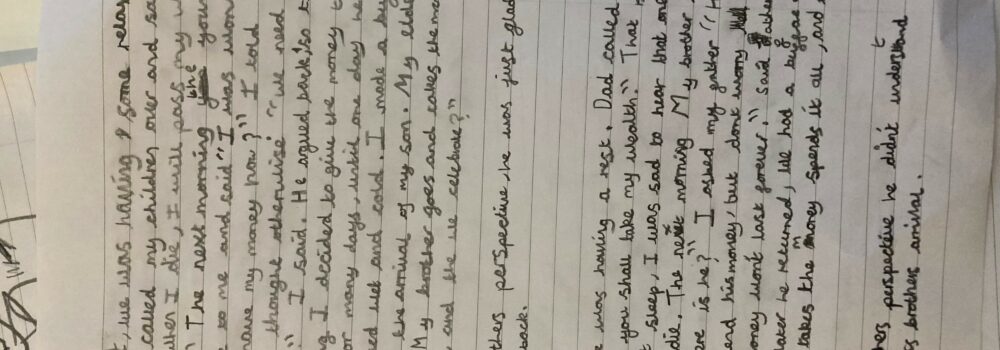 , we was having some relax
called my children over and sa
when I die, I will pass my w
" The next morning the youn
to me and said "I was won
have my money now?" I told
thought otherwise "we need
" I said. He argued back so t
g I decided to give the money t
or many days, until one day he
ed wet and cold. I made a bu
the arrival of my son. My elde
My brother goes and takes the mo
and the we celebrate?"
thers perspective, he was just glad
back.
was having a rest. Dad called
you shall take my wealth." That n
t sleep, I was sad to hear that one
die. The next morning My brother
ere is he?" I asked my father "H
and his money, but dont worry
oney won't last forever." said father
later he returned, we had a bigger
takes the money spends it all, and
hers perspective he didn't understand
s brothers arrival.